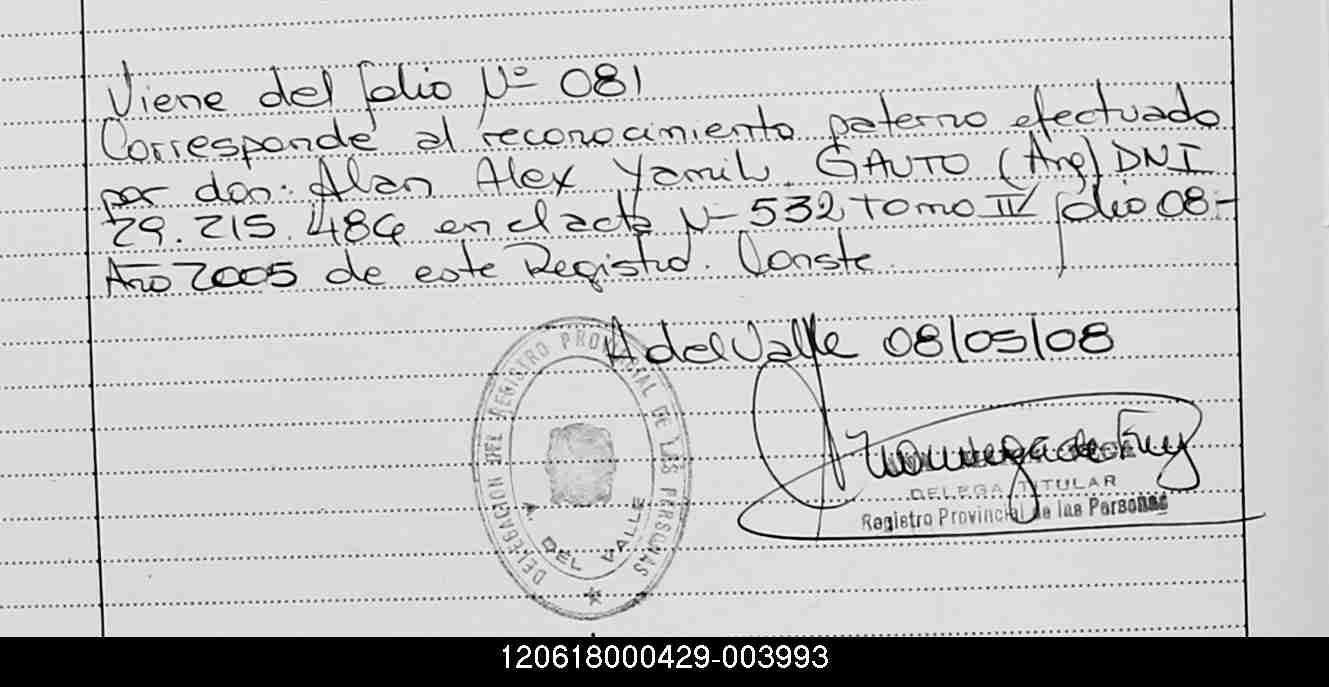 Viene del folio Nº 081
Corresponde al reconocimiento paterno efectuado
por don: Alan Alex Yamil GAUTO (Arg) DNI
29.215.484 en el acta Nº 532 tomo IV folio 08-
Año 2005 de este Registro. Conste.
A del Valle 08/05/08
DELEGACION DEL REGISTRO PROVINCIAL DE LAS PERSONAS
A. DEL VALLE
DELEGA TITULAR
Registro Provincial de las Personas
120618000429-003993